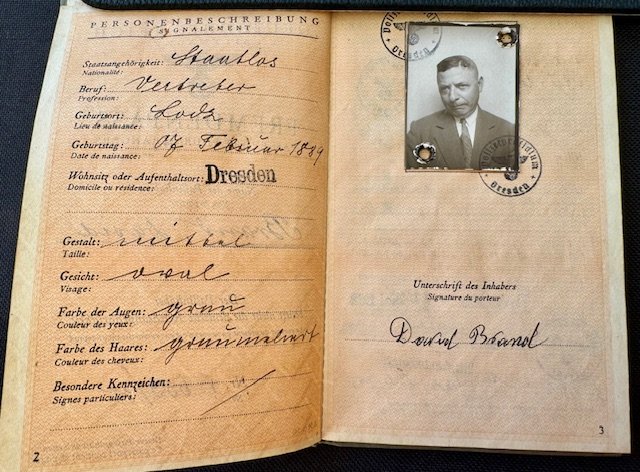 PERSONENBESCHREIBUNG
SIGNALEMENT
Staatsangehörigkeit: Staatlos
Nationalité:
Beruf: Vertreter
Profession:
Geburtsort: Lodz
Lieu de naissance:
Geburtstag: 07 Februar 1889
Date de naissance:
Wohnsitz oder Aufenthaltsort: Dresden
Domicile ou résidence:
Gestalt: mittel
Taille:
Gesicht: oval
Visage:
Farbe der Augen: grau
Couleur des yeux:
Farbe des Haares: graumeliert
Couleur des cheveux:
Besondere Kennzeichen: /
Signes particuliers:
2
Polizeipräsidium
Dresden
Polizeipräsidium
Dresden
Unterschrift des Inhabers
Signature du porteur
David Brand
3